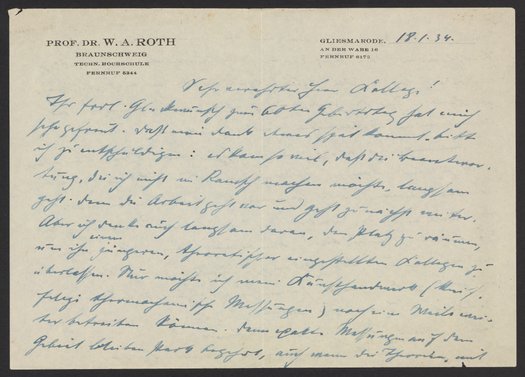 PROF. DR. W. A. ROTH
BRAUNSCHWEIG
TECHN. HOCHSCHULE
FERNRUF 5344
GLIESMARODE, 18.1.34.
AN DER WABE 16
FERNRUF 6173
Sehr verehrter Herr Kollege!
Ihr frdl. Glückwunsch zum 60ten Geburtstag hat mich
sehr gefreut. Dass mein Dank etwas spät kommt, bitte
ich zu entschuldigen: es kam so viel, dass die Beantwor-
tung, die ich nicht im Ramsch machen möchte, langsam
geht. Denn die Arbeit geht vor und geht zunächst weiter.
Aber ich denke auch langsam daran, den Platz zu räumen,
um ihn einem jüngeren, theoretischer eingestellten Kollegen zu
überlassen. Nur möchte ich mein Kunsthandwerk
thermochemische Messungen) noch eine Weile wei-
ter betreiben können. Denn exakte Messungen auf dem
Gebiet bleiben stark begehrt, auch wenn die Theorien, mit